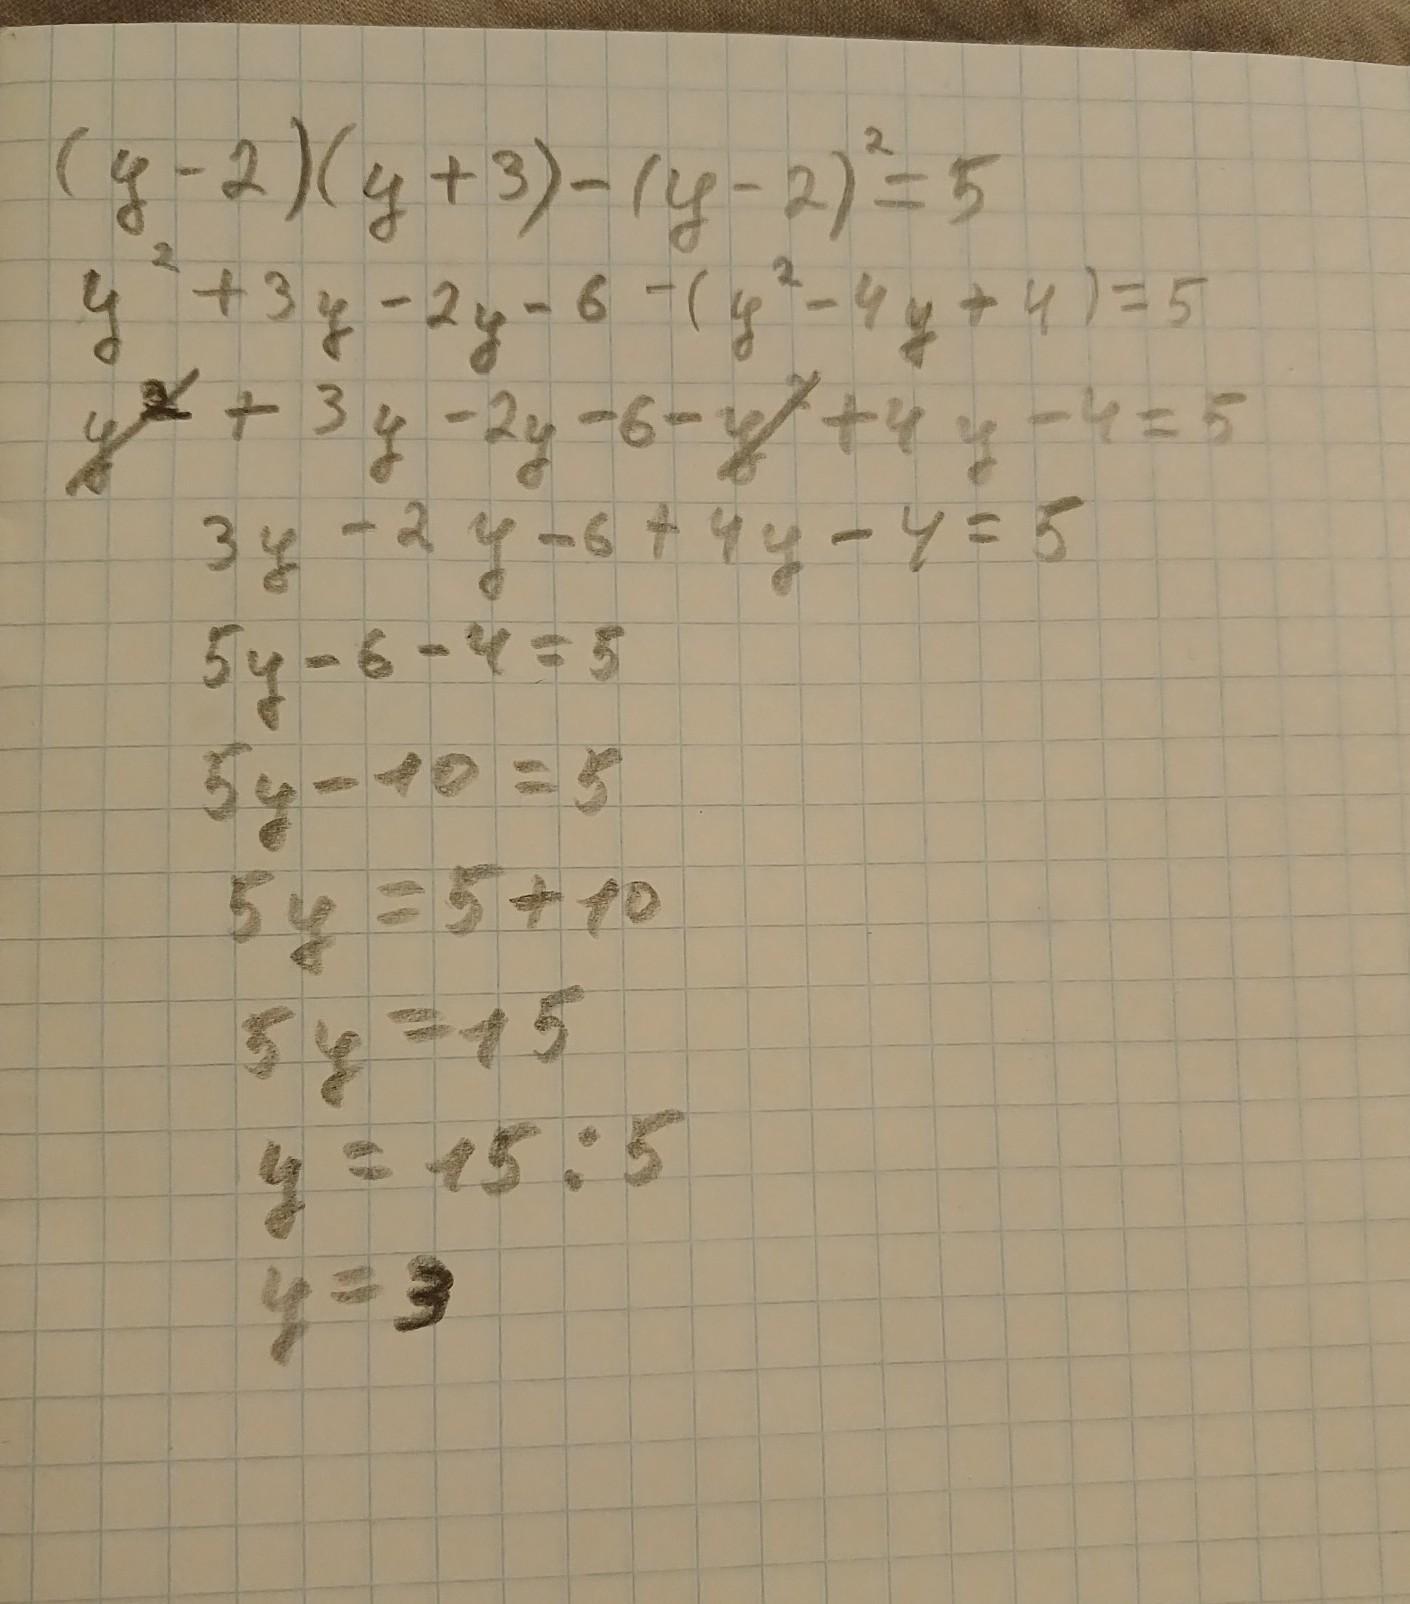 (y-2)(y+3)-(y-2)²=5
y²+3y-2y-6-(y²-4y+4)=5
y²+3y-2y-6-y²+4y-4=5
3y-2y-6+4y-4=5
5y-6-4=5
5y-10=5
5y=5+10
5y=15
y=15:5
y=3